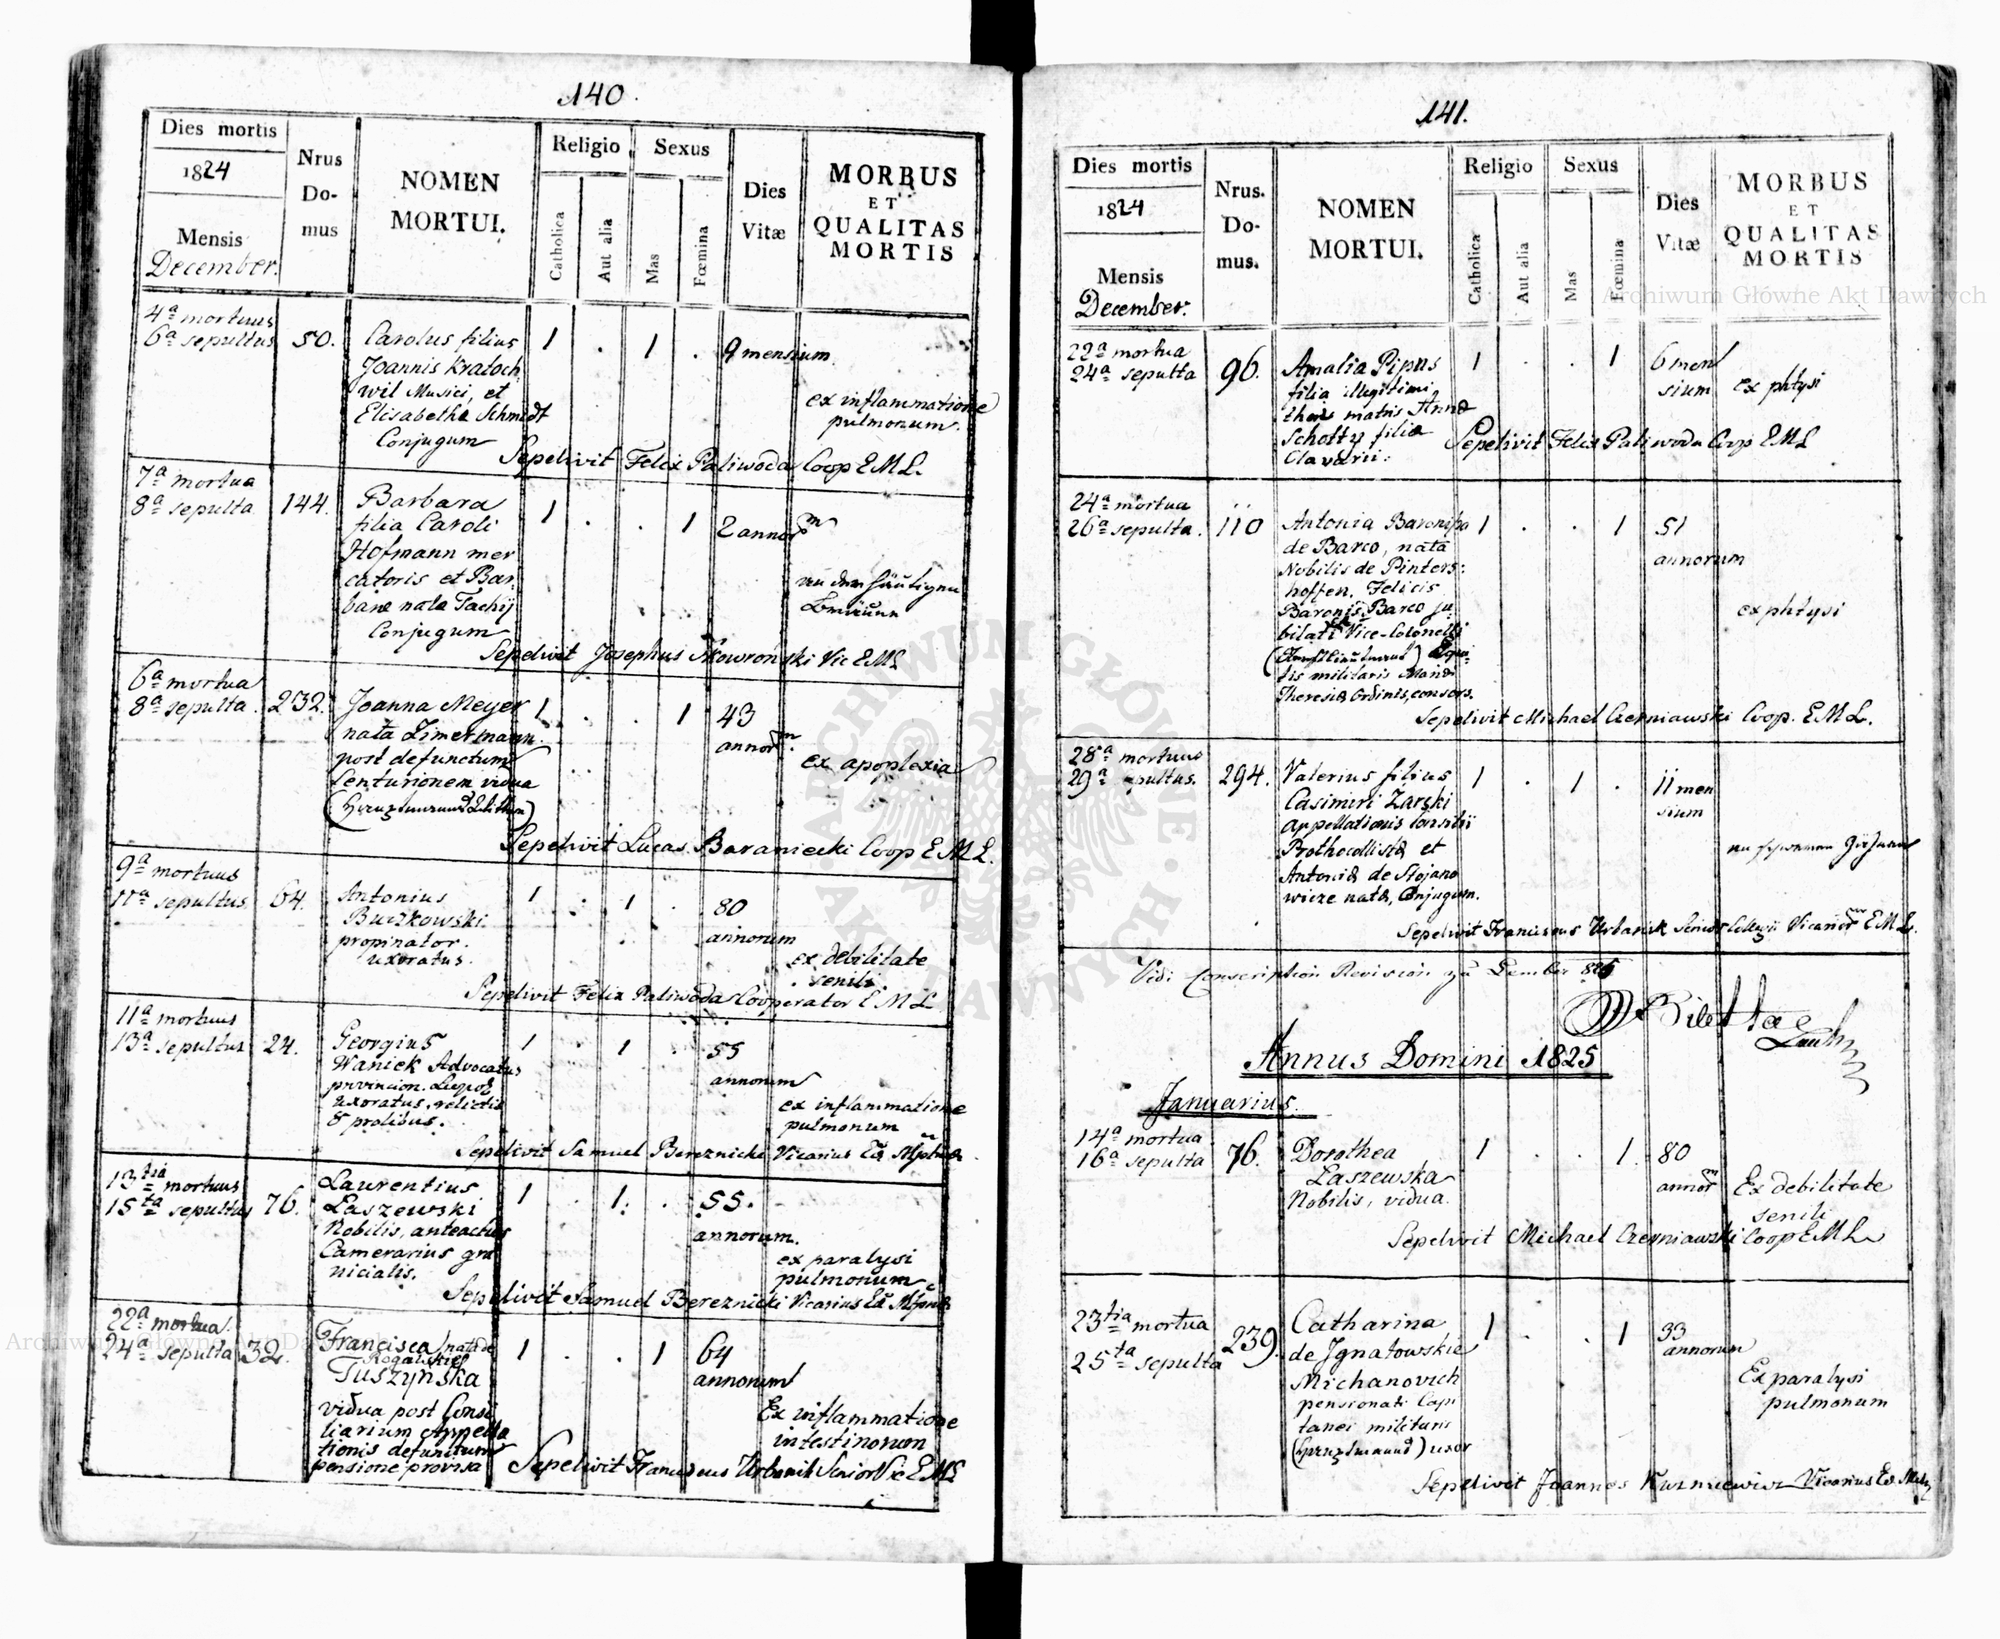 140.
Dies mortis
1824
Mensis
December.
Nrus
Do-
mus
NOMEN
MORTUI.
Religio
Catholica
Aut alia
Sexus
Mas
Fœmina
Dies
Vitæ
MORBUS
ET
QUALITAS
MORTIS
4ª mortuus
6ª sepultus
50.
Carolus filius
Joannis Kratoch
wil Musici, et
Elisabetha Schmidt
Conjugum
1 . 1 .
9 mensium
ex inflammatione
pulmonum.
Sepelivit Felix Paliwoda Coop E M L.
7ª mortua
8ª sepulta
144.
Barbara
filia Caroli
Hofmann mer
catoris et Bar
baræ nata Tachij
Conjugum
1 . . 1
2 annorm
Sepelivit Josephus Skowronski Vic E M L
6ª mortua
8ª sepulta.
232.
Joanna Meyer
nata Zimermann
post defunctum
Centurionem vidua
1 . . 1
43
annorm.
ex apoplexia
Sepelivit Lucas Baraniecki Coop E M L.
9ª mortuus
11ª sepultus
64.
Antonius
Buczkowski
propinator.
uxoratus.
1 . 1 .
80
annorum
ex debilitate
senili.
Sepelivit Felix Paliwoda Cooperator E M L
11ª mortuus
13ª sepultus
24.
Georgius
Waniek Advocatus
provincion. Leopol
uxoratus, relictis
8 prolibus.
1 . 1 .
55
annorum
ex inflammatione
pulmonum
Sepelivit Samuel Bereznicki Vicarius
13tia mortuus
15ta sepultus
76.
Laurentius
Łaszewski
Nobilis, anteactus
Camerarius gra
nicialis.
1 . 1. .
55.
annorum.
ex paralysi
pulmonum
Sepelivit Samuel Bereznicki Vicarius
22ª mortua.
24ª sepulta
32.
Francisca nata de
Rogalskie
Tuszyńska
vidua post Consi
liarium Appella
tionis defunctum
pensione provisa
1 . . 1
64
annorum
Ex inflammatione
intestinorum
Sepelivit Franciscus Urbanik Senior Vic E M L
141.
Dies mortis
1824
Mensis
December.
Nrus.
Do-
mus.
NOMEN
MORTUI.
Religio
Catholica
Aut alia
Sexus
Mas
Fœmina
Dies
Vitæ
MORBUS
ET
QUALITAS
MORTIS
22ª mortua
24ª sepulta
96.
Amalia Pipus
filia illegitimi
thori matris Annæ
Schotty filiæ
Clavarii.
1 . . 1
6 men
sium
ex phtysi
Sepelivit Felix Paliwoda Coop E M L
24ª mortua
26ª sepulta.
110
Antonia Baronissa
de Barco, nata
Nobilis de Pinters:
hoffen, Felicis
Baronis Barco ju
bilati Vice-Colonelli
tis militaris Mariæ
Theresiæ Ordinis, consors.
1 . . 1
51
annorum
ex phtysi
Sepelivit Michael Czerniawski Coop. E M L.
28ª mortuus
29ª sepultus.
294.
Valerius filius
Casimiri Zarski
Appellationis Consilii
Prothocollistæ et
Antoniæ de Stojano
wicze natæ, Conjugum.
1 . 1 .
11 men
sium
Sepelivit Franciscus Urbanik Senior Collegii Vicariorm E M L.
Vidi Conscription Revision zu Lemberg
Annus Domini 1825
Januarius.
14ª mortua
16ª sepulta
76.
Dorothea
Łaszewska
Nobilis, vidua.
1 . . 1.
80
annorm
Ex debilitate
senili
Sepelivit Michael Czerniawski Coop E M L
23tia mortua
25ta sepulta
239.
Catharina
de Jgnatowskie
Michanovich
pensionati Capi
tanei militaris
uxor
1 . . 1
33
annorum
Ex paralysi
pulmonum
Sepelivit Joannes Kuzniewicz Vicarius
Archiwum Główne Akt Dawnych
Archiwum Główne Akt Dawnych
ARCHIWUM GŁÓWNE AKT DAWNYCH